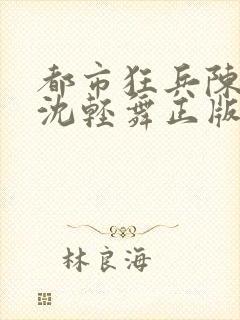 都市狂兵陳
沈輕舞正版
林良海